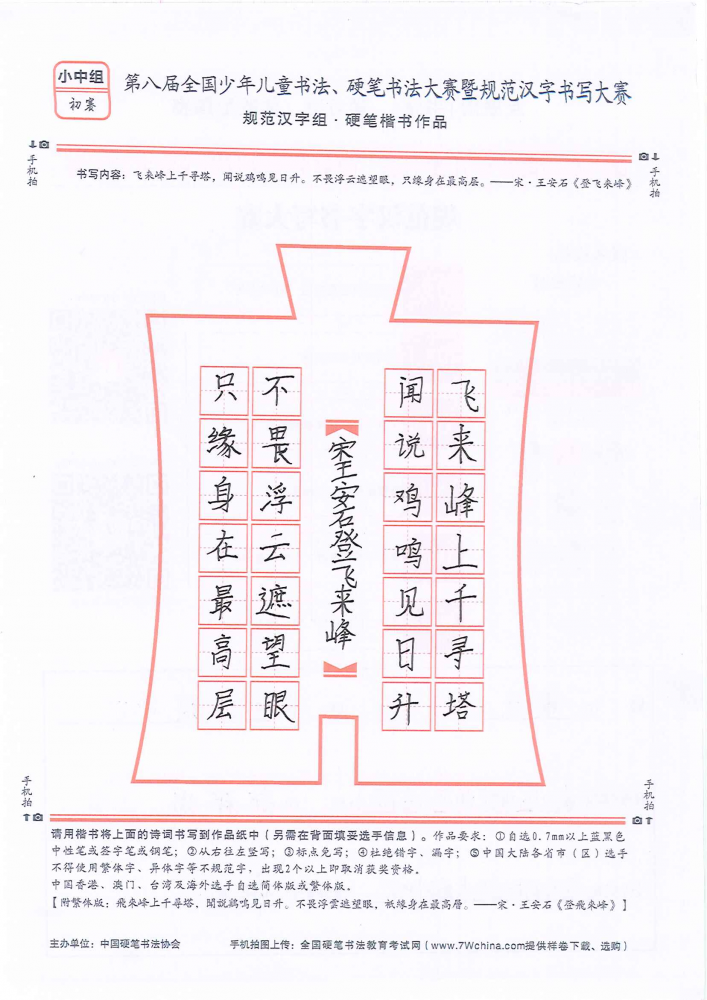 小中组
初赛
第八届全国少年儿童书法、硬笔书法大赛暨规范汉字书写大赛
规范汉字组·硬笔楷书作品
手机拍
手机拍
书写内容:飞来峰上千寻塔,闻说鸡鸣见日升。不畏浮云遮望眼,只缘身在最高层。——宋·王安石《登飞来峰》
飞来峰上千寻塔
闻说鸡鸣见日升
宋王安石登飞来峰
不畏浮云遮望眼
只缘身在最高层
手机拍
手机拍
请用楷书将上面的诗词书写到作品纸中(另需在背面填妥选手信息)。作品要求:①自选0.7mm以上蓝黑色
中性笔或签字笔或钢笔;②从右往左竖写;③标点免写;④杜绝错字、漏字;⑤中国大陆各省市(区)选手
不得使用繁体字、异体字等不规范字,出现2个以上即取消获奖资格。
中国香港、澳门、台湾及海外选手自选简体版或繁体版。
【附繁体版:飛來峰上千尋塔,聞說鷄鳴見日升。不畏浮雲遮望眼,祇緣身在最高層。——宋·王安石《登飛來峰》】
主办单位:中国硬笔书法协会
手机拍图上传:全国硬笔书法教育考试网(www.7Wchina.com提供样卷下载、选购)